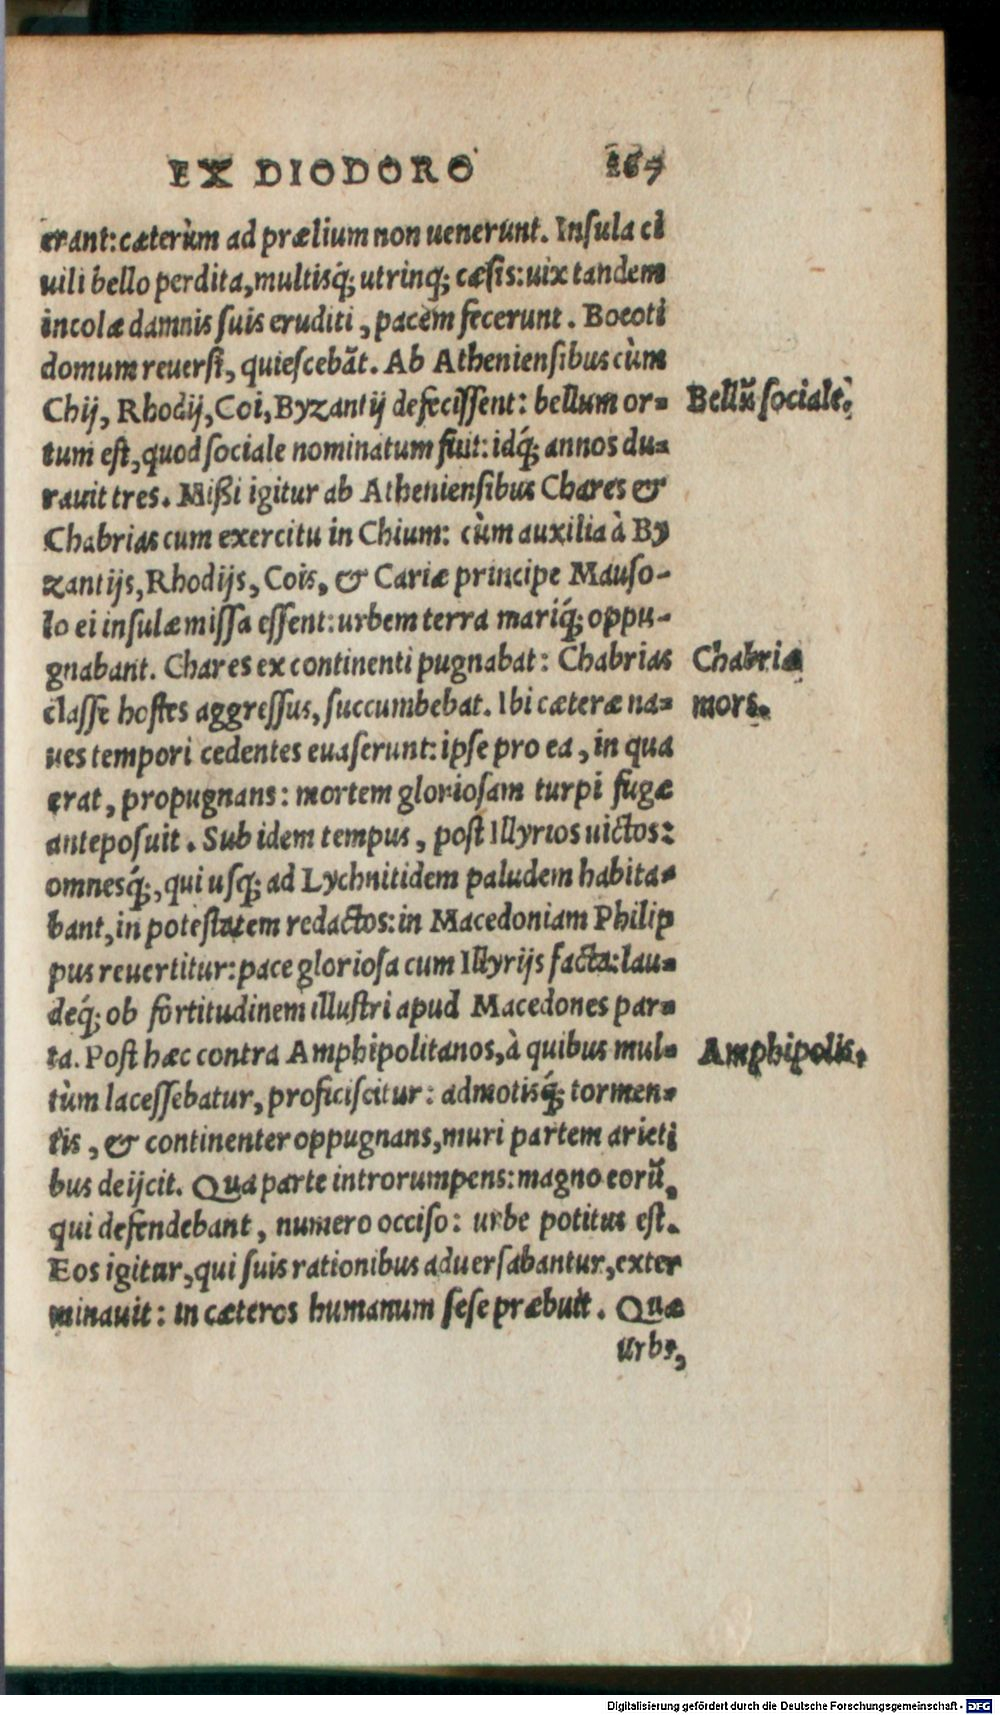 EX DIODORO 267
erant: cæterùm ad prælium non uenerunt. Insula ci
uili bello perdita, multisq́; utrinq; cæsis: uix tandem
incolæ damnis suis eruditi, pacem fecerunt. Boeoti
domum reuersi, quiescebāt. Ab Atheniensibus cùm
Chij, Rhodij, Coi, Byzantij defecissent: bellum or-
Bellū sociale.
tum est, quod sociale nominatum fuit: idq́; annos du-
rauit tres. Mißi igitur ab Atheniensibus Chares &
Chabrias cum exercitu in Chium: cùm auxilia à By
zantijs, Rhodijs, Cois, & Cariæ principe Mauso-
lo ei insulæ missa essent: urbem terra mariq́; oppu-
gnabant. Chares ex continenti pugnabat: Chabrias
Chabriæ
classe hostes aggressus, succumbebat. Ibi cæteræ na-
mors.
ues tempori cedentes euaserunt: ipse pro ea, in qua
erat, propugnans: mortem gloriosam turpi fugæ
anteposuit. Sub idem tempus, post Illyrios uictos:
omnesq́;, qui usq; ad Lychnitidem paludem habita-
bant, in potestatem redactos: in Macedoniam Philip
pus reuertitur: pace gloriosa cum Illyrijs facta: lau-
deq́; ob fortitudinem illustri apud Macedones par-
ta. Post hæc contra Amphipolitanos, à quibus mul-
Amphipolis.
tùm lacessebatur, proficiscitur: admotisq́; tormen-
tis, & continenter oppugnans, muri partem arieti
bus deijcit. Qua parte introrumpens: magno eorū,
qui defendebant, numero occiso: urbe potitus est.
Eos igitur, qui suis rationibus aduersabantur, exter
minauit: in cæteros humanum sese præbuit. Quæ
urbs,
Digitalisierung gefördert durch die Deutsche Forschungsgemeinschaft - DFG